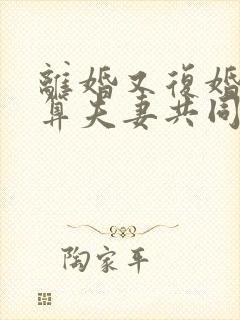 離婚又復婚
算夫妻共同
陶家平